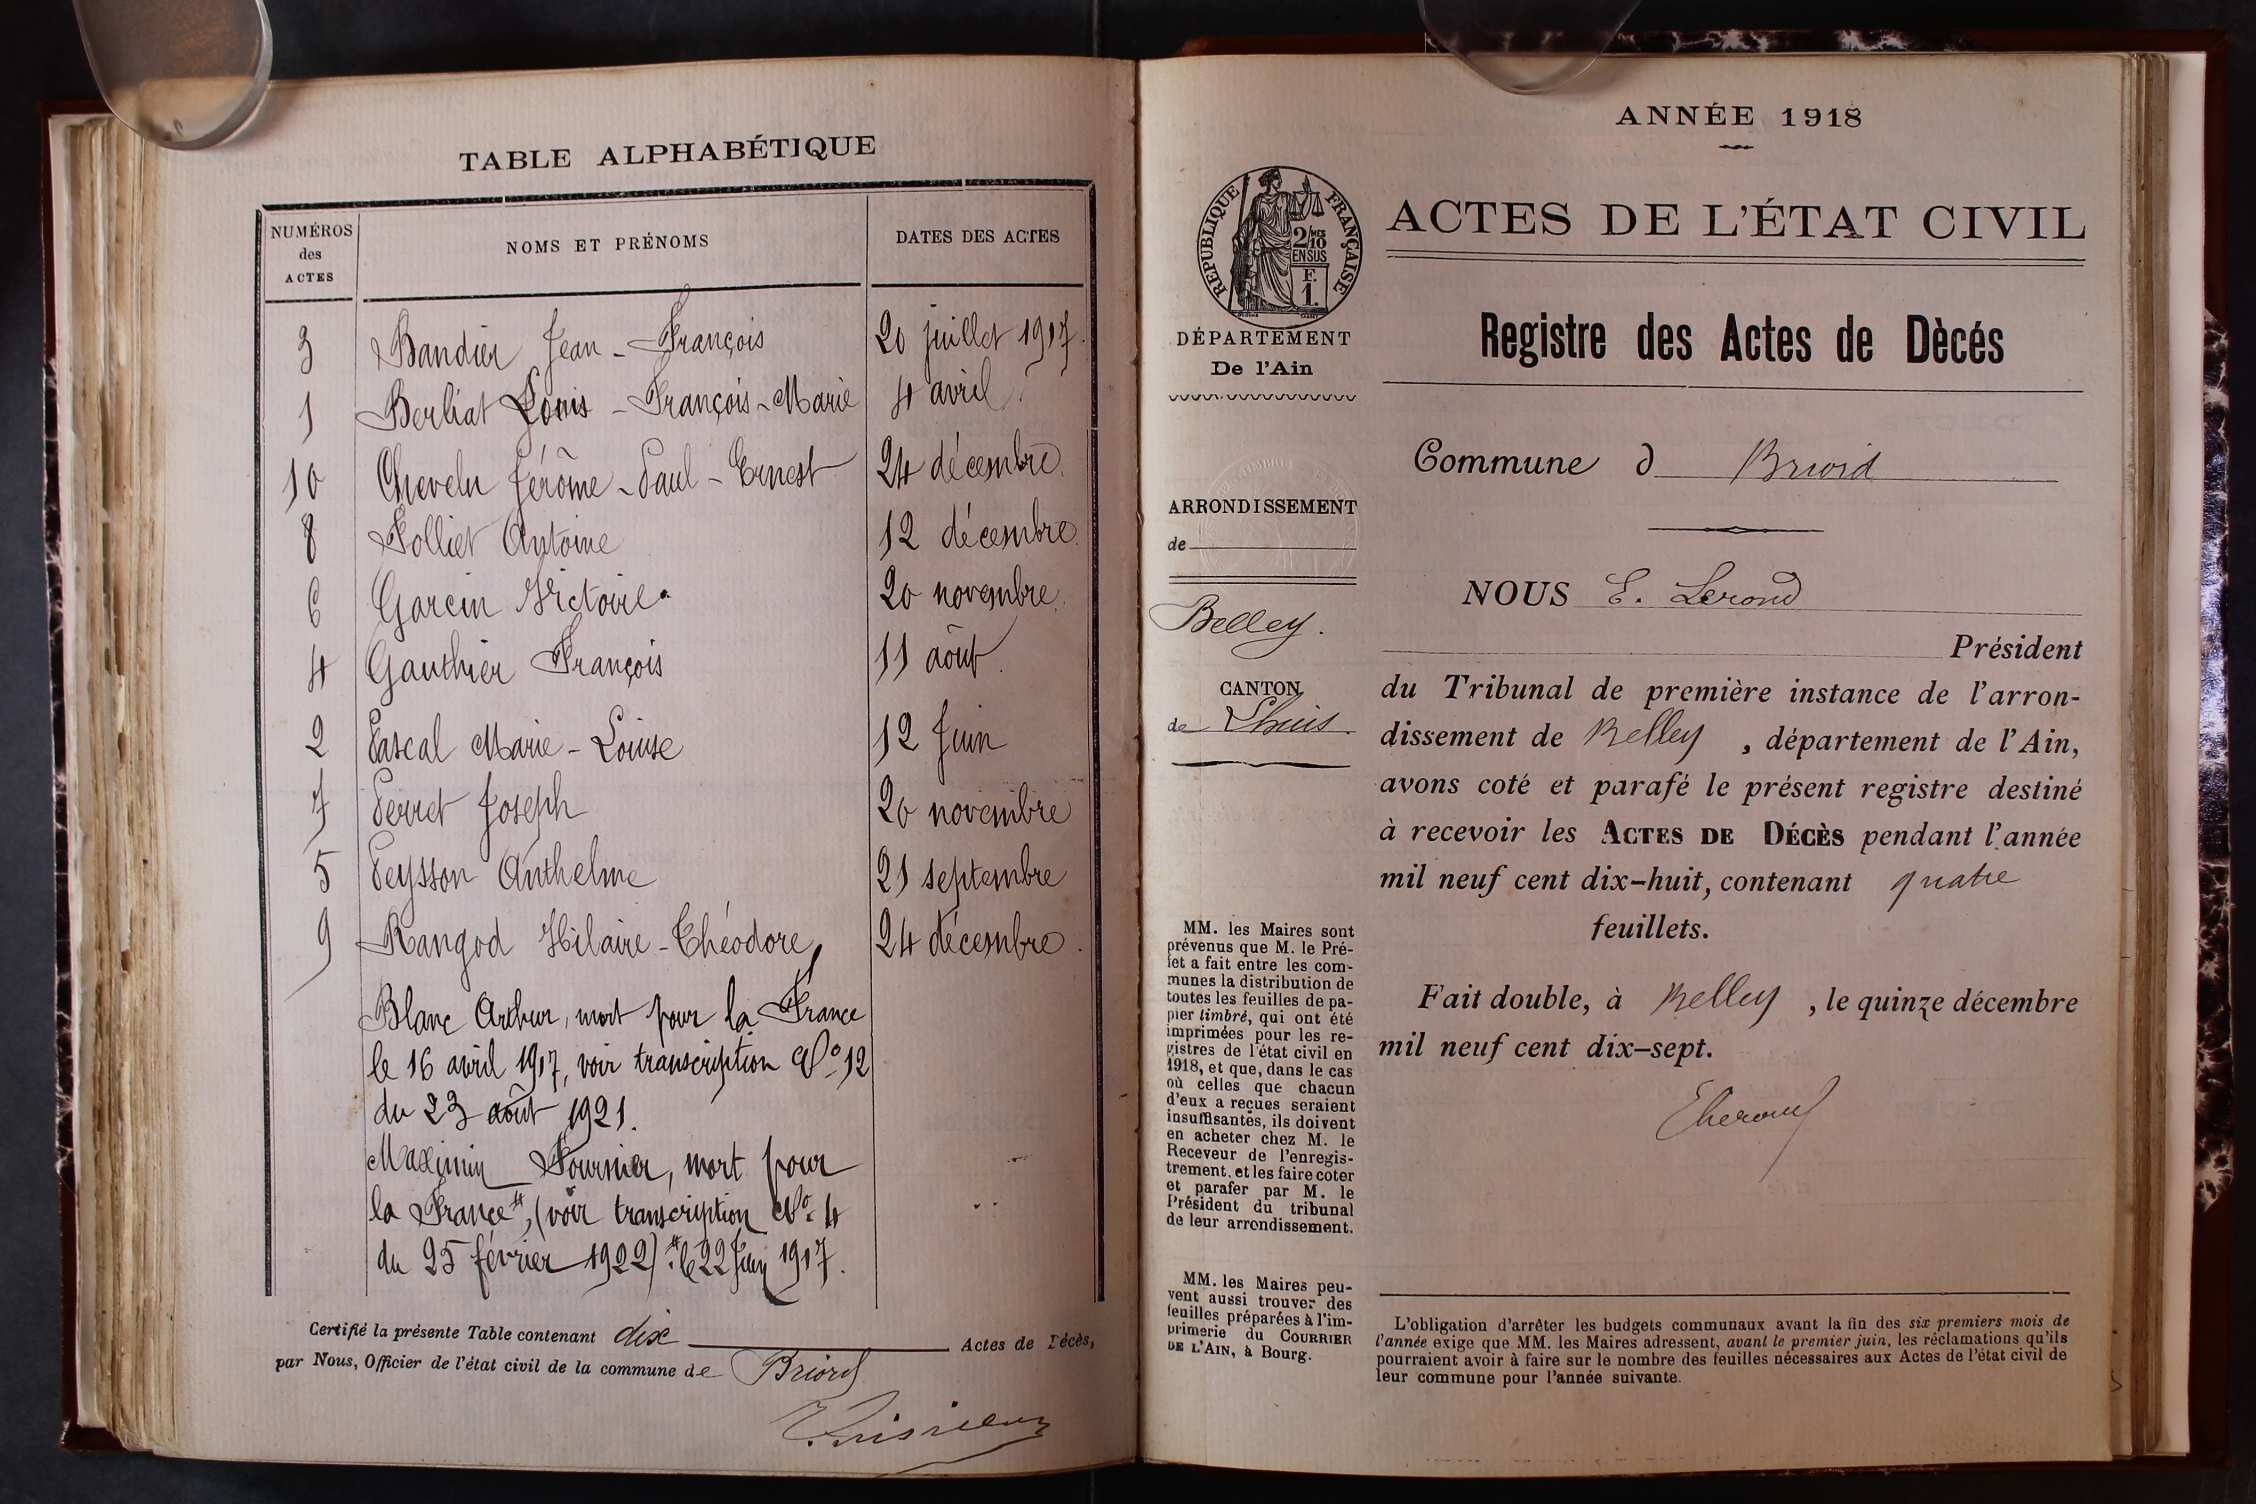 TABLE ALPHABÉTIQUE
NUMÉROS des ACTES
NOMS ET PRÉNOMS
DATES DES ACTES
3 Bandier Jean-François 20 juillet 1917.
1 Berliat Louis-François-Marie 4 avril.
10 Chevelu Jérôme-Paul-Ernest 24 décembre.
8 Folliet Antoine 12 décembre.
6 Garcin Victoire. 20 novembre.
4 Gauthier François 11 août.
2 Pascal Marie-Louise 12 Juin
7 Perret Joseph 20 novembre
5 Peysson Anthelme 21 septembre
9 Rangod Hilaire-Théodore 24 décembre.
Blanc Arthur, mort pour la France
le 16 avril 1917, voir transcription No 12
du 23 août 1921.
Maximin Fournier, mort pour
la France #, (voir transcription No 4
du 25 février 1922) # le 22 Juin 1917.
Certifié la présente Table contenant dix Actes de Décès,
par Nous, Officier de l'état civil de la commune de Briord
ANNÉE 1918
RÉPUBLIQUE FRANÇAISE
2/10 MES
EN SUS
F.
1.
ACTES DE L'ÉTAT CIVIL
DÉPARTEMENT
De l'Ain
Registre des Actes de Dècés
Commune d Briord
ARRONDISSEMENT
de
Belley.
CANTON
de Lhuis.
NOUS E. Lerond
Président
du Tribunal de première instance de l'arron-
dissement de Belley, département de l'Ain,
avons coté et parafé le présent registre destiné
à recevoir les ACTES DE DÉCÈS pendant l'année
mil neuf cent dix-huit, contenant quatre
feuillets.
Fait double, à Belley, le quinze décembre
mil neuf cent dix-sept.
ELerond
MM. les Maires sont
prévenus que M. le Pré-
fet a fait entre les com-
munes la distribution de
toutes les feuilles de pa-
pier timbré, qui ont été
imprimées pour les re-
gistres de l'état civil en
1918, et que, dans le cas
où celles que chacun
d'eux a reçues seraient
insuffisantes, ils doivent
en acheter chez M. le
Receveur de l'enregis-
trement, et les faire coter
et parafer par M. le
Président du tribunal
de leur arrondissement.
MM. les Maires peu-
vent aussi trouver des
feuilles préparées à l'im-
primerie du COURRIER
DE L'AIN, à Bourg.
L'obligation d'arrêter les budgets communaux avant la fin des six premiers mois de
l'année exige que MM. les Maires adressent, avant le premier juin, les réclamations qu'ils
pourraient avoir à faire sur le nombre des feuilles nécessaires aux Actes de l'état civil de
leur commune pour l'année suivante.